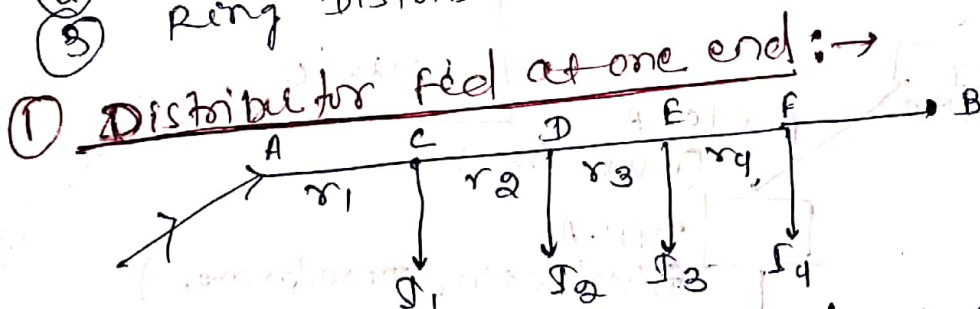 ③ Ring
① Distributor fed at one end :→
A C D E F B
r1 r2 r3 r4
I1 I2 I3 I4